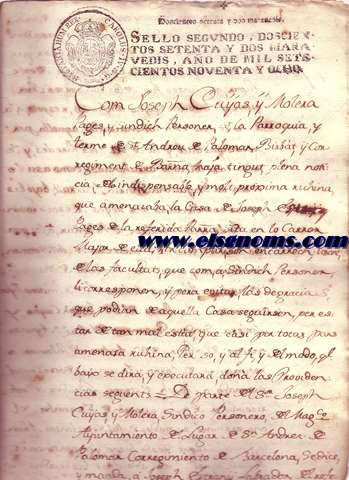 Doscientos setenta y dos maravedis.
SELLO SEGVNDO, DOSCIEN-
TOS SETENTA Y DOS MARA-
VEDIS, AÑO DE MIL SETE-
CIENTOS NOVENTA Y OCHO.
CAROLUS IV D G
HISPANIARUM REX
Com Joseph Cuyas, y Molera
Pages, y Sindich Personer, de la Parroquia, y
terme de St. Andreu de Palomar, Bisbat, y Cor-
regiment de Barna. haja tingut plena noti-
cia del indispensable, y molt próxima ruhina,
que amenasaba la Casa de Joseph
Pages de la referida Parra. sita en lo Carrer
Major de
www.elsenoms.com
de las facultats, que com a Sindich Personer,
li corresponen, y pera evitar las desgracias
que podian de aquella Casa seguirsen, per es-
tar de tan mal estat, que casi per totas parts
amenasa ruhina; Per so, y al fi, y del modo, q.
bajo se dirá, y executará, doná las Providen-
cias seguents. De parte del Sor. Joseph
Cuyas, y Molera Sindico Personero, del Magco.
Ayuntamiento del Lugar de Sn. Andres de
Palomar Corregimiento de Barcelona, se dice,
y manda, a Joseph Labrador del